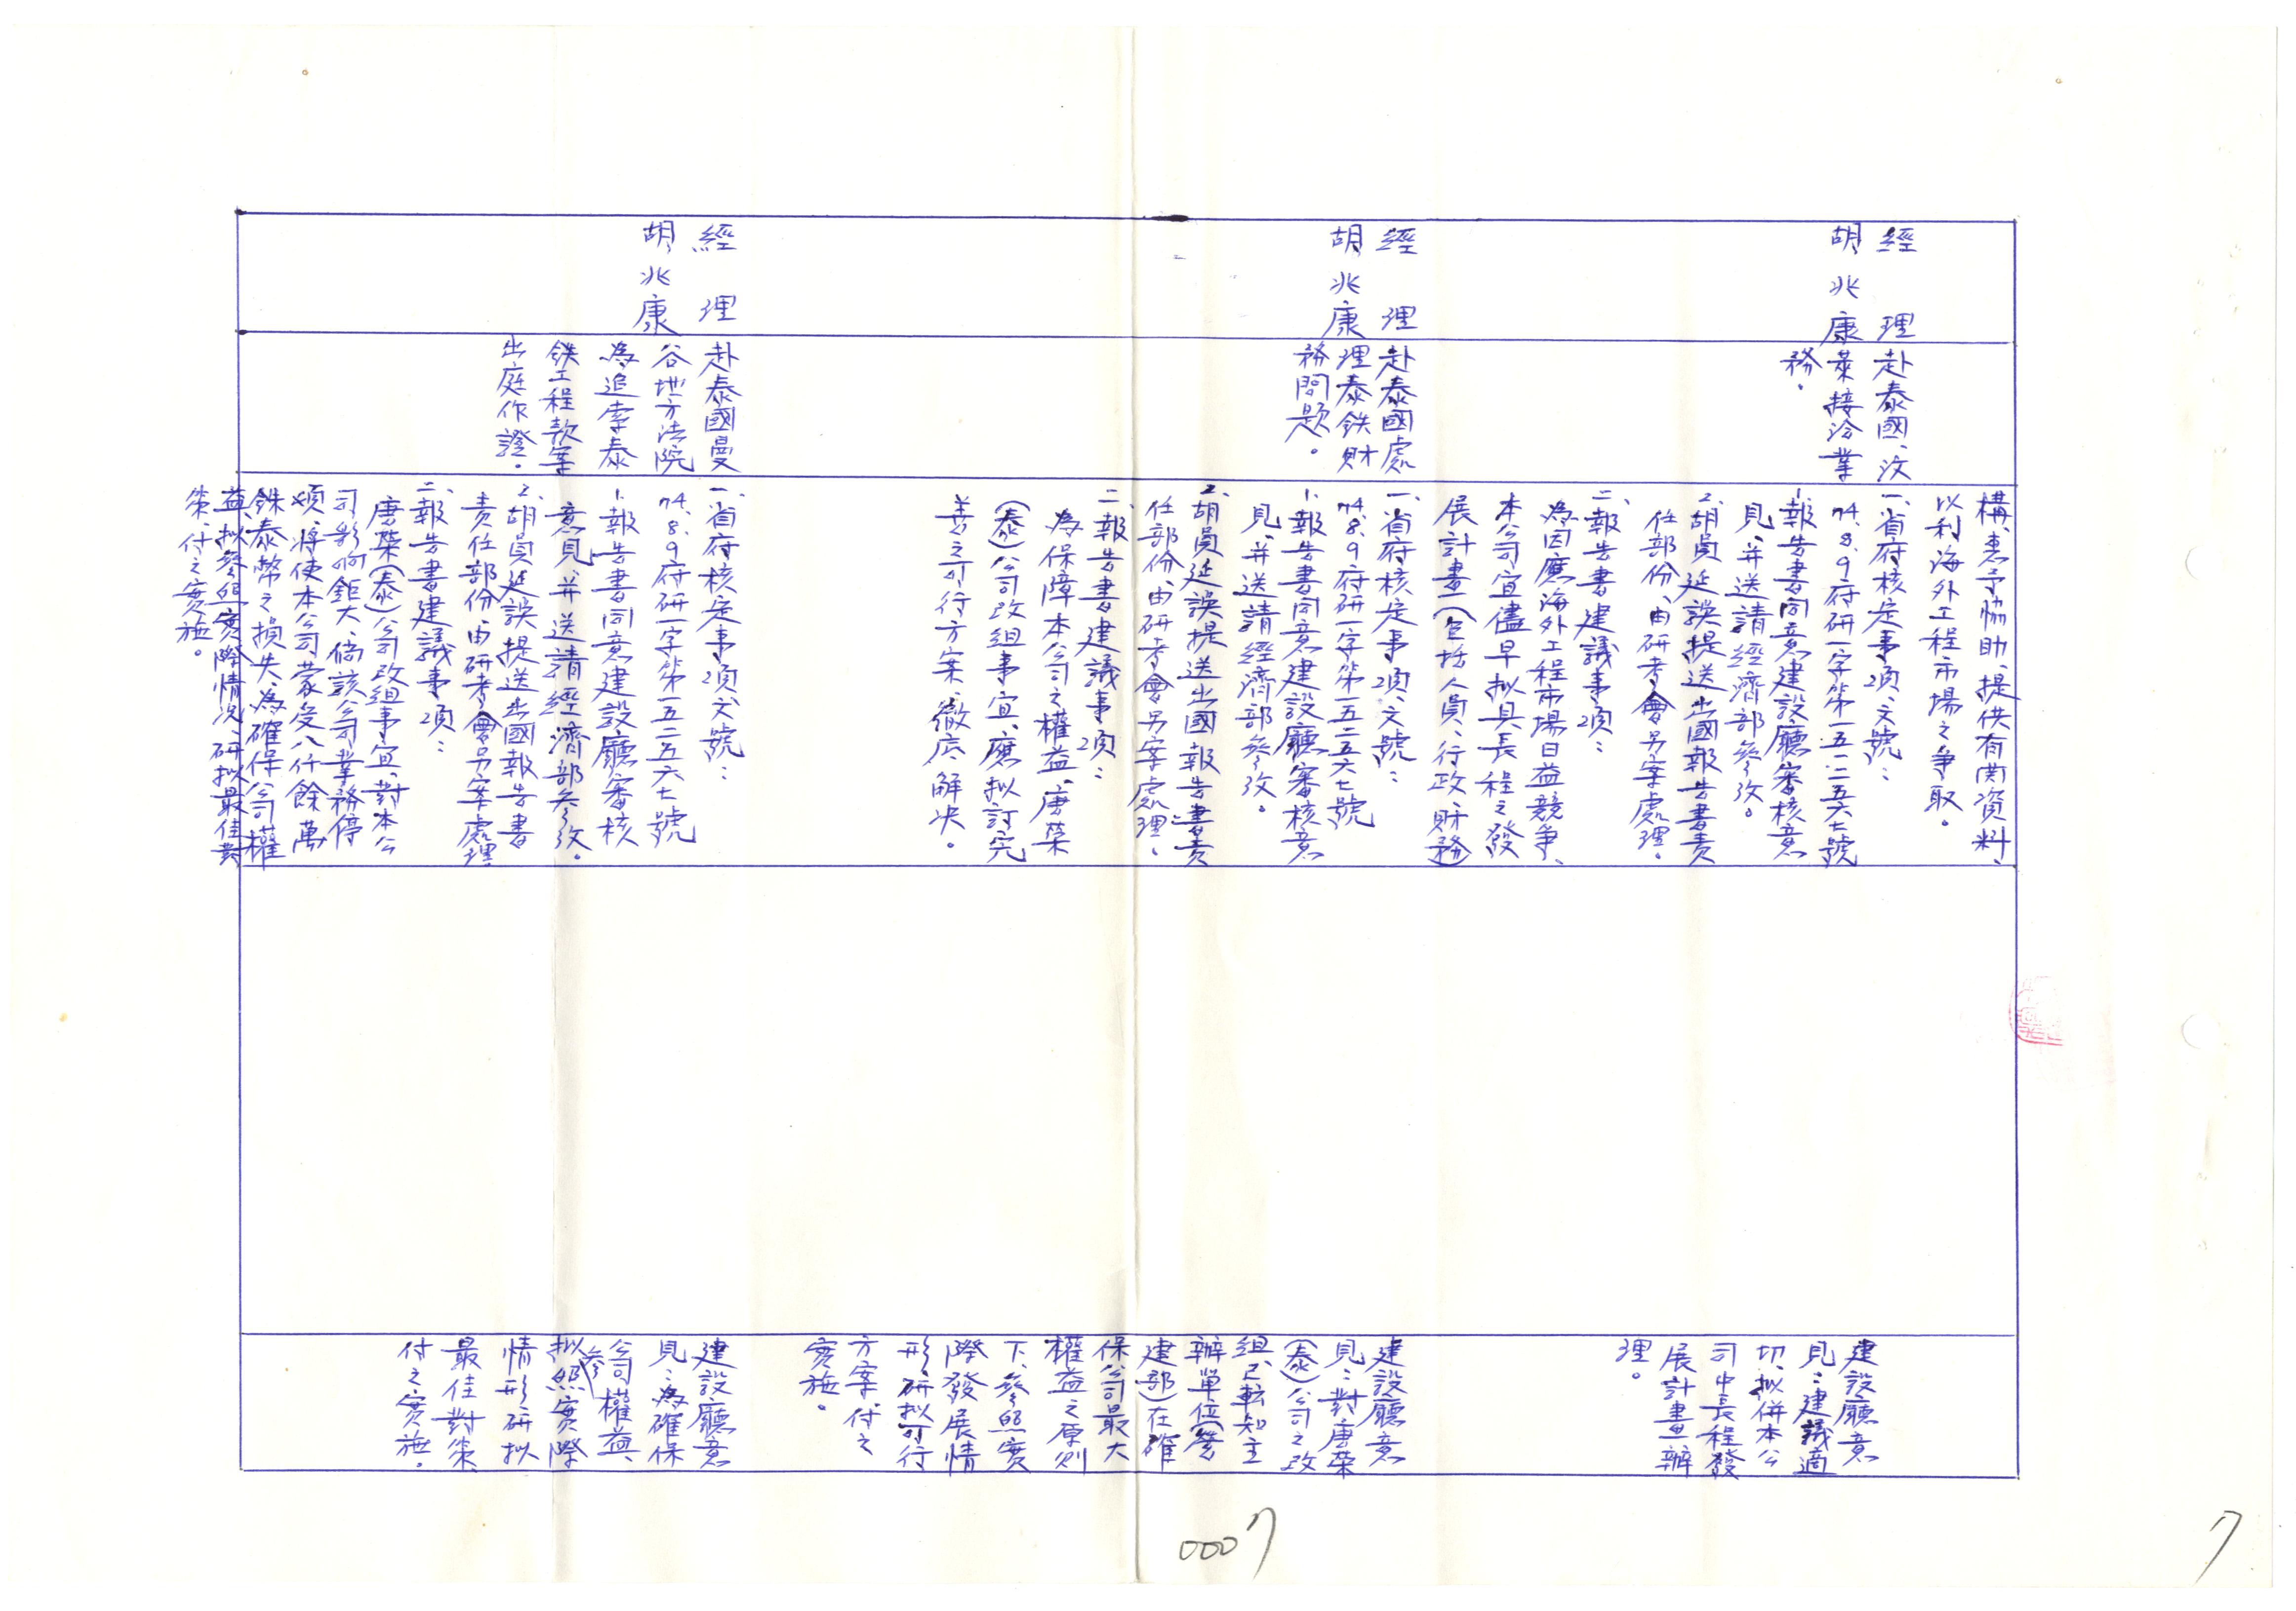 構、惠予協助、提供有関資料、
以利海外工程市場之爭取。
經理
胡兆康
赴泰國、汶
萊接洽業
務。
一、省府核定事項、文號：
74.8.9府研一字第一五二五六七號
1.報告書同意建設廳審核意
見、并送請經濟部參攷。
2.胡員延誤提送出國報告書責
任部份、由研考會另案處理。
二、報告書建議事項：
為因應海外工程市場日益競爭、
本公司宜儘早拟具長程之發
展計畫（包括人員、行政、財務）
建設廳意
見：建議適
切、拟併本公
司中長程發
展計畫辦
理。
經理
胡兆康
赴泰國處
理泰鉄財
務問題。
一、省府核定事項、文號：
74.8.9府研一字第一五二五六七號
1.報告書同意建設廳審核意
見、并送請經濟部參攷。
2.胡員延誤提送出國報告書責
任部份、由研考會另案處理。
二、報告書建議事項：
為保障本公司之權益、唐榮
（泰）公司改組事宜、應拟訂完
善之可行方案、徹底解決。
建設廳意
見：對唐榮
（泰）公司之改
組、已転知主
辦單位（營
建部）在確
保公司最大
權益之原則
下、參照實
際發展情
形、研拟可行
方案付之
實施。
經理
胡兆康
赴泰國曼
谷地方法院
為追索泰
鉄工程款案
出庭作證。
一、省府核定事項、文號：
74.8.9府研一字第一五二五六七號
1.報告書同意建設廳審核
意見、并送請經濟部參攷。
2.胡員延誤提送出國報告書
責任部份、由研考會另案處理
二、報告書建議事項：
唐榮（泰）公司改組事宜、對本公
司影响鉅大、倘該公司業務停
頓、將使本公司蒙受八仟餘萬
銖泰幣之損失、為確保公司權
益、拟參照實際情況、研拟最佳對
策、付之實施。
建設廳意
見：為確保
公司權益、
拟參照實際
情形研拟
最佳對策、
付之實施。
0007
7